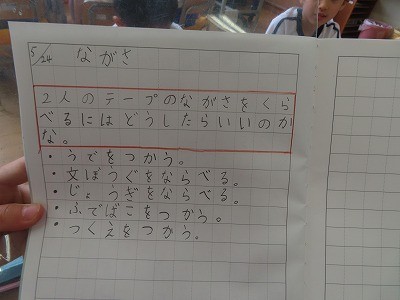 5/24 ながさ
2人のテープのながさをくら
べるにはどうしたらいいのか
な。
・うでをつかう。
・文ぼうぐをならべる。
・じょうぎをならべる。
・ふでばこをつかう。
・つくえをつかう。